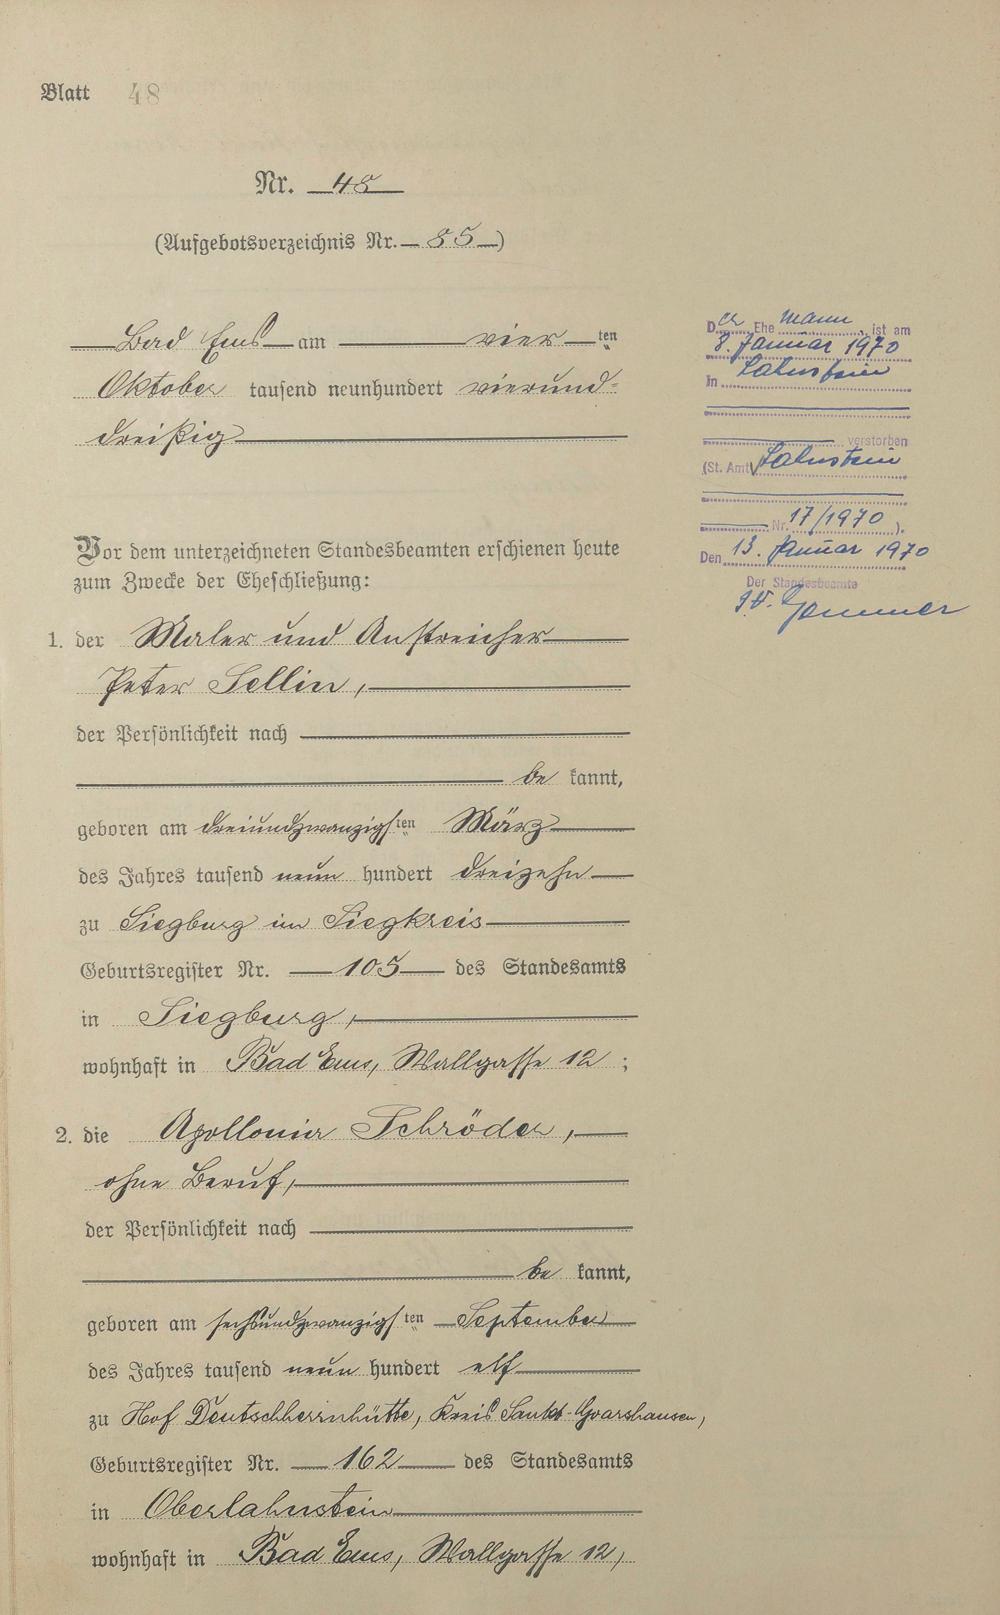 Blatt 48
Nr. 48
(Aufgebotsverzeichnis Nr. 85)
Bad Ems am vierten
Oktober tausend neunhundert vierund-
dreißig
Vor dem unterzeichneten Standesbeamten erschienen heute
zum Zwecke der Eheschließung:
1. der Maler und Anstreicher
Peter Sellin,
der Persönlichkeit nach
be kannt,
geboren am dreiundzwanzigsten März
des Jahres tausend neun hundert dreizehn
zu Siegburg im Siegkreis
Geburtsregister Nr. 105 des Standesamts
in Siegburg,
wohnhaft in Bad Ems, Wallgasse 12;
2. die Apollonia Schröder,
ohne Beruf,
der Persönlichkeit nach
be kannt,
geboren am sechsundzwanzigsten September
des Jahres tausend neun hundert elf
zu Hof Deutschherrnhütte, Kreis Sankt-Goarshausen,
Geburtsregister Nr. 162 des Standesamts
in Oberlahnstein
wohnhaft in Bad Ems, Wallgasse 12,
Der Ehe mann ist am
8. Januar 1970
In Lahnstein
verstorben
(St. Amt Lahnstein
Nr. 17/1970).
Den 13. Januar 1970
Der Standesbeamte